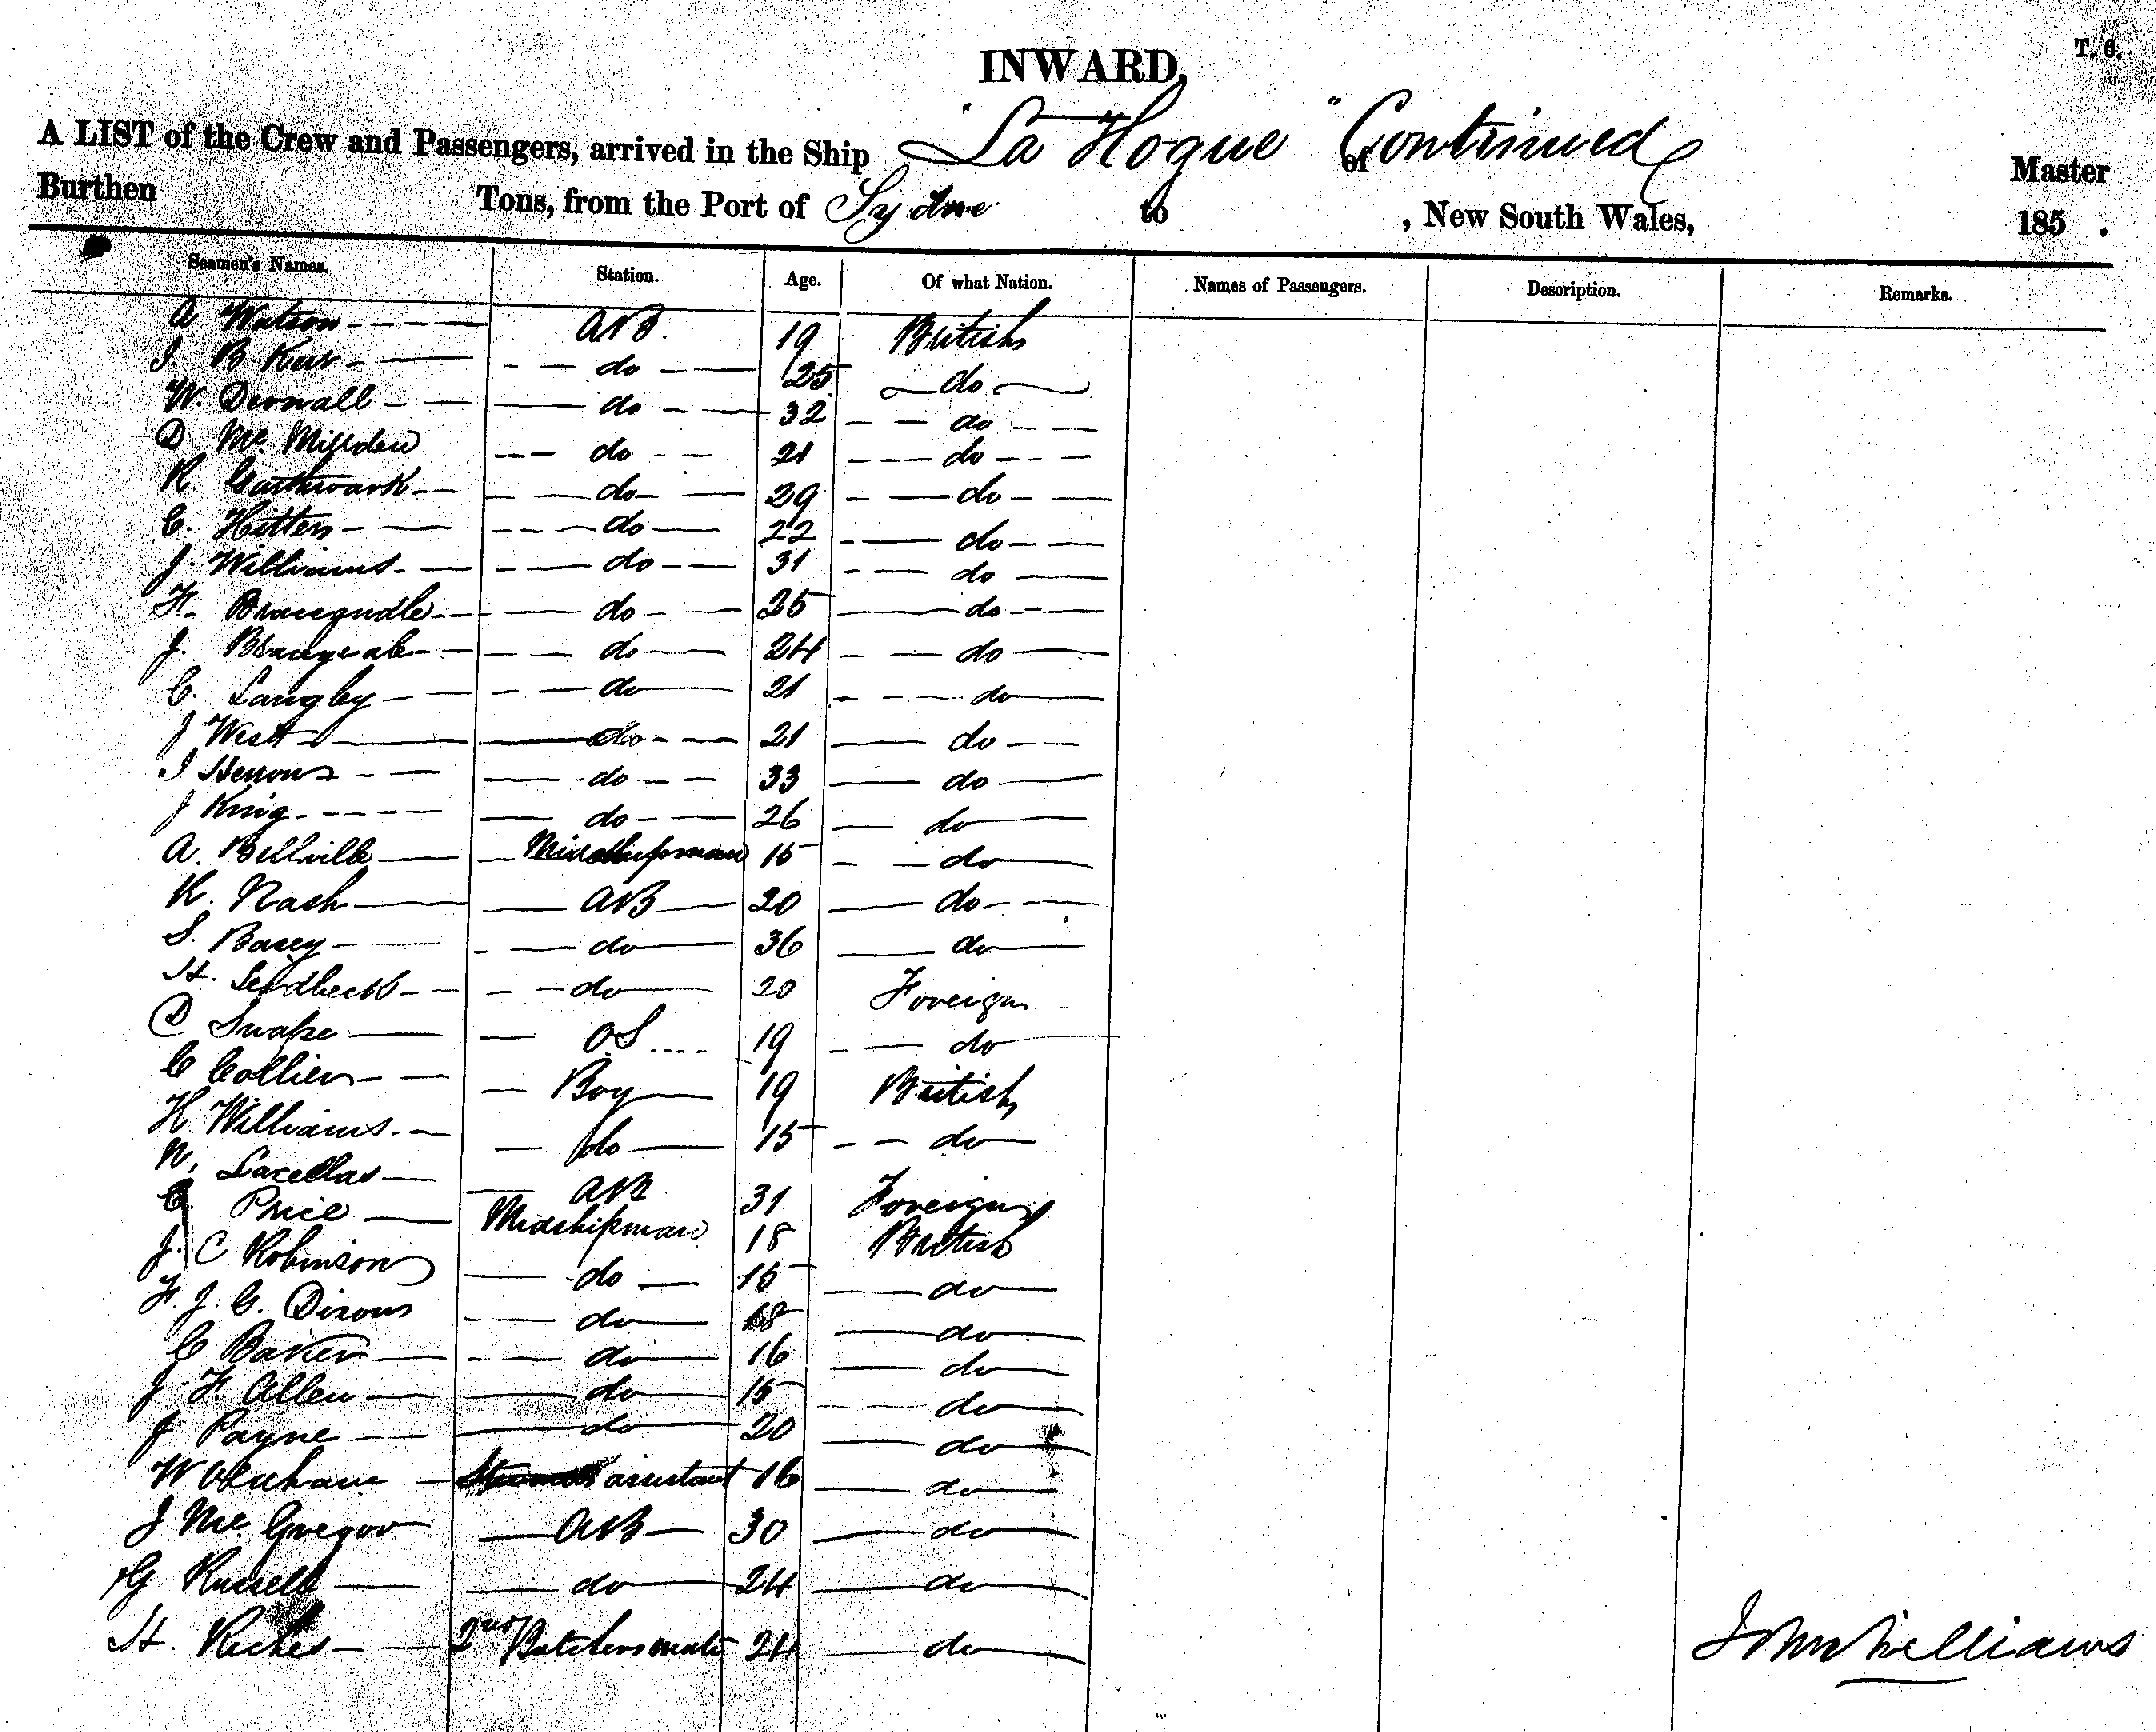 T. G.
INWARD,
A LIST of the Crew and Passengers, arrived in the Ship "La Hogue" Continued of Master
Burthen Tons, from the Port of Sydne to , New South Wales, 185 .
Seamen's Names. Station. Age. Of what Nation. Names of Passengers. Description. Remarks.
A Watson AB. 19 British
J. B Kerr do 25 do
W. Dewnall do 32 do
D Mc do 21 do
R. do 29 do
C. Hutton do 22 do
J. Williams do 31 do
F. do 25 do
J. do 24 do
C. Langley do 21 do
J West do 21 do
J do 33 do
J King do 26 do
A. Bellville Midshipman 15 do
K. Nash AB 20 do
S. Basey do 36 do
H. do 20 Foreign
D Swape OS 19 do
C Collier Boy 19 British
H Williams do 15 do
N. AB 31 Foreign
C Price Midshipman 18 British
J. C Robinson do 15 do
F. J. C. Dixons do 18 do
C Baker do 16 do
J F Allen do 15 do
J Payne do 20 do
W assistant 16 do
J Mc Gregor AB 30 do
G Russell do 24 do
H. Riches 2nd Butchers mate 24 do
John Williams